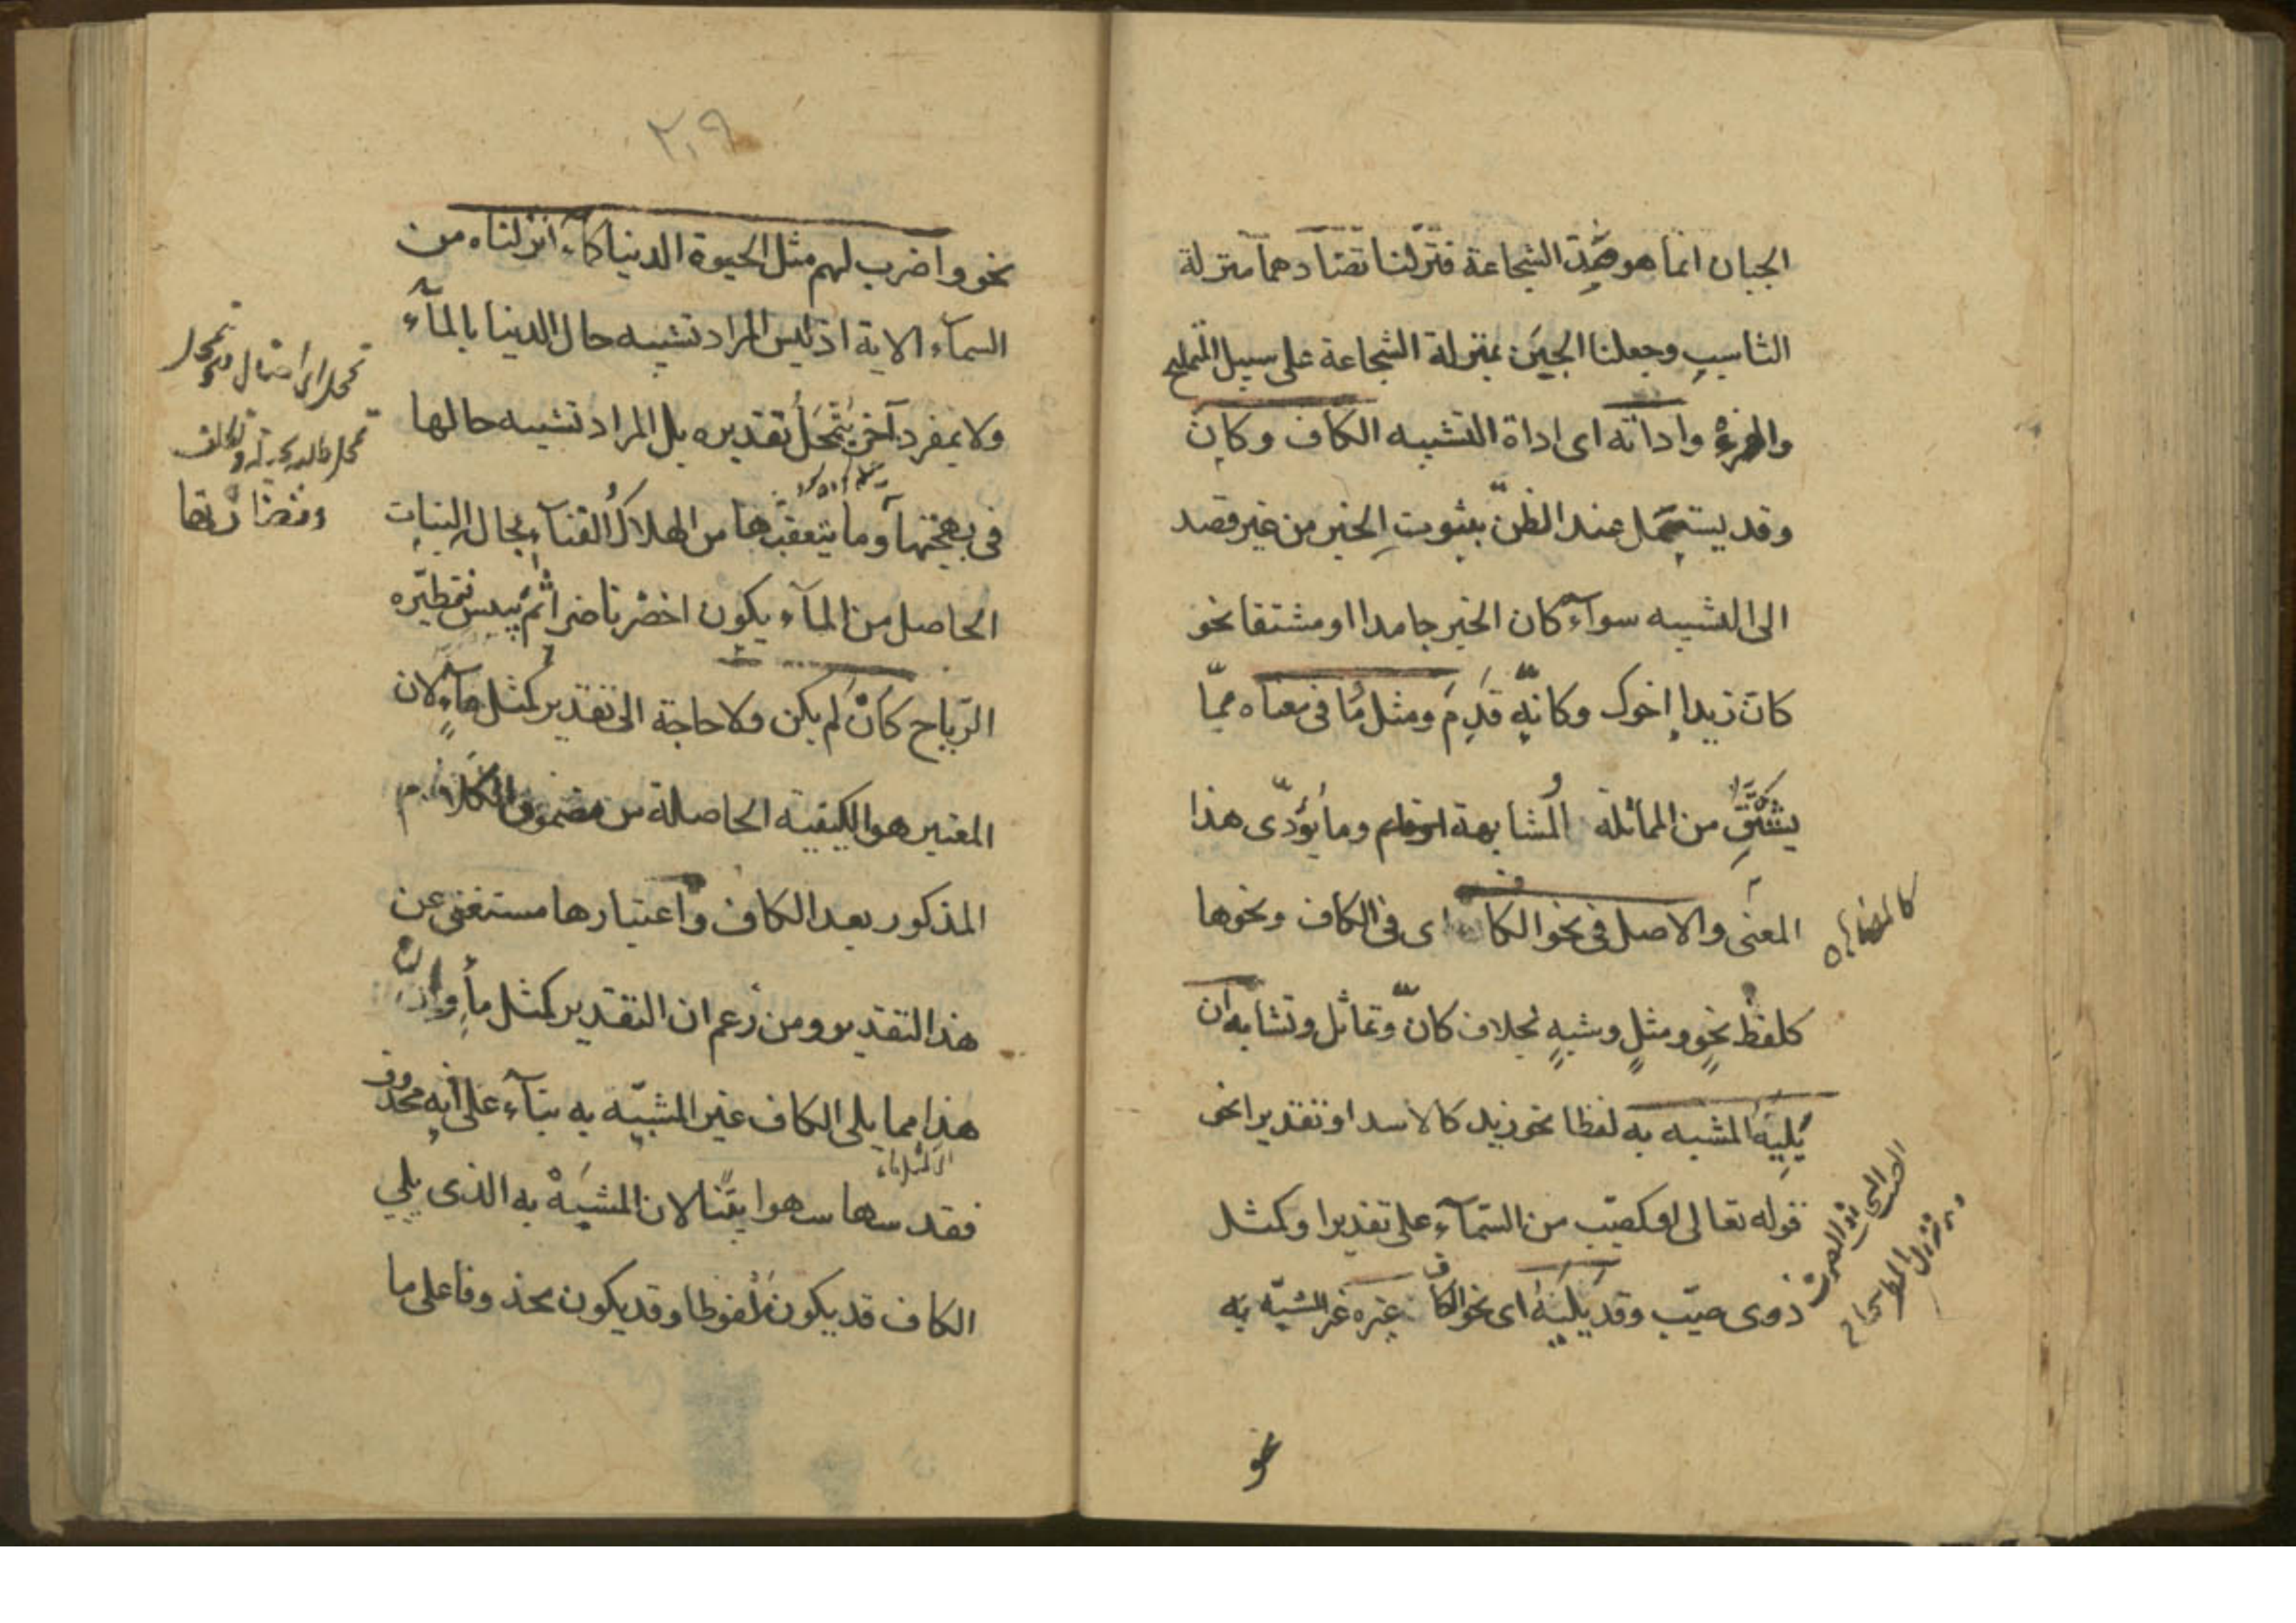 الجبان انما هو ضد الشجاعة فنزلنا تضادهما منزلة
التناسب وجعلنا الجبن بمنزلة الشجاعة على سبيل التمليح
والهزء واداته اى اداة التشبيه الكاف وكان
وقد يستعمل عند الظنّ بثبوت الخبر من غير قصد
الى التشبيه سوآء كان الخبر جامدا او مشتقا نحو
كانّ زيدا اخوك وكانّه قدم ومثل وما فى معناه ممّا
يشتق من المماثلة والمشابهة وما يؤدّى هذا
المعنى والاصل فى نحو الكاف اى فى الكاف ونحوها
كلفظ نحو ومثل وشبه بخلاف كانّ وتماثل وتشابه ان
يليه المشبه به لفظا نحو زيد كالاسد او تقديرا نحو
قوله تعالى او كصيّب من السّمآء على تقدير او كمثل
ذوى صيّب وقد يليه اى نحو الكاف غيره غير المشبّه به
كالمضاف
نحو
٢٠٩
نحو واضرب لهم مثل الحيوة الدنيا كمآء انزلناه من
السمآء الاية اذ ليس المراد تشبيه حال الدنيا بالمآء
ولا بمفرد آخر يتمحل تقديره بل المراد تشبيه حالها
فى بهجتها وما يتعقبها من الهلاك والفنآء بحال النبات
الحاصل من المآء يكون اخضر ناضرا ثم ييبس فتطيّره
الرّياح كان لم يكن ولا حاجة الى تقدير كمثل مآء لان
المعتبر هو الكيفية الحاصلة من مضمون الكلام
المذكور بعد الكاف واعتبارها مستغنى عن
هذا التقدير ومن زعم ان التقدير كمثل مآء وان
هذا مما يلى الكاف غير المشبّه به بنآء على انه محذوف
فقد سها سهوا بيّنا لان المشبه به الذى يلي
الكاف قد يكون ملفوظا وقد يكون محذوفا على ما